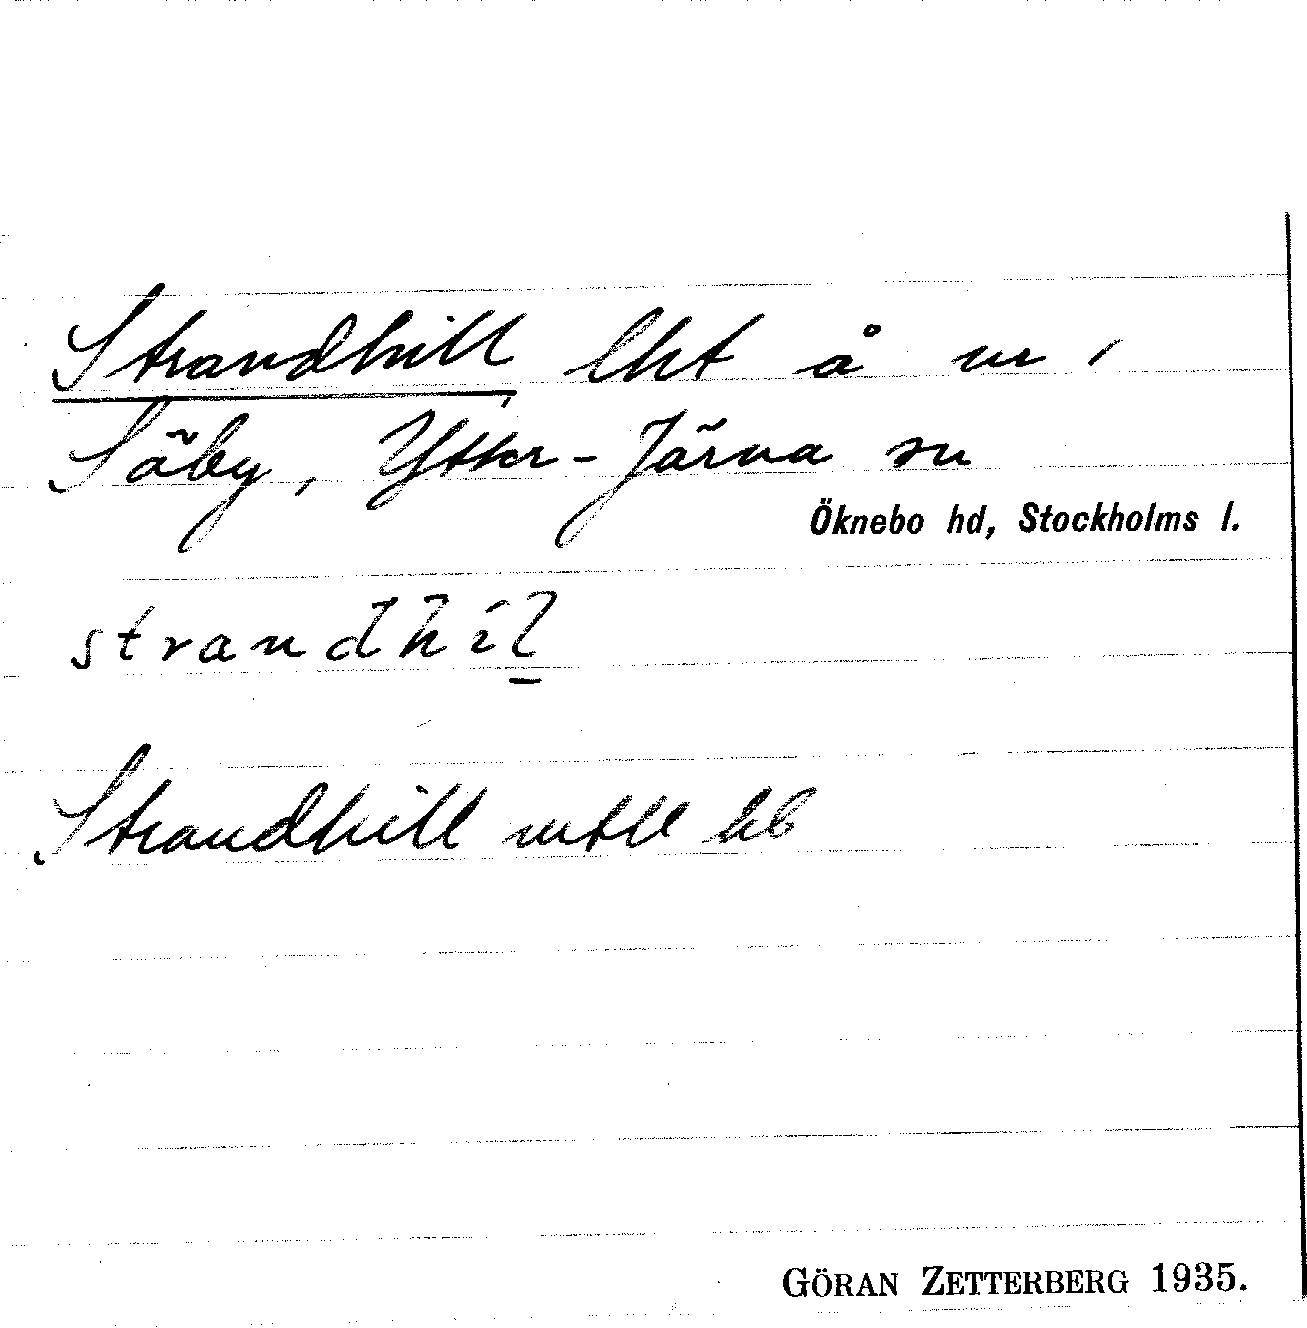 Strandhill, lht å nr 1
Säby, Ytter-Järna sn
Öknebo hd, Stockholms l.
strandhil
Strandhill mtll kb
GÖRAN ZETTERBERG 1935.